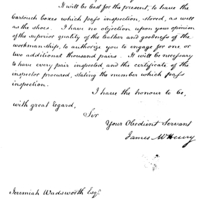 It will be best for the present, to have the
Cartouch boxes which pass inspection, stored, as well
as the shoes. I have no objection, upon your opinion
of the superior quality of the leather and goodness of the
workmanship, to authorize you to engage for one or
two additional thousand pairs. It will be necessary
to have every pair inspected, and the certificate of the
inspector produced, stating the number which pass
inspection.
I have the honour to be,
with great regard,
Sir
Your Obedient Servant
James McHenry
Jeremiah Wadsworth Esqr.